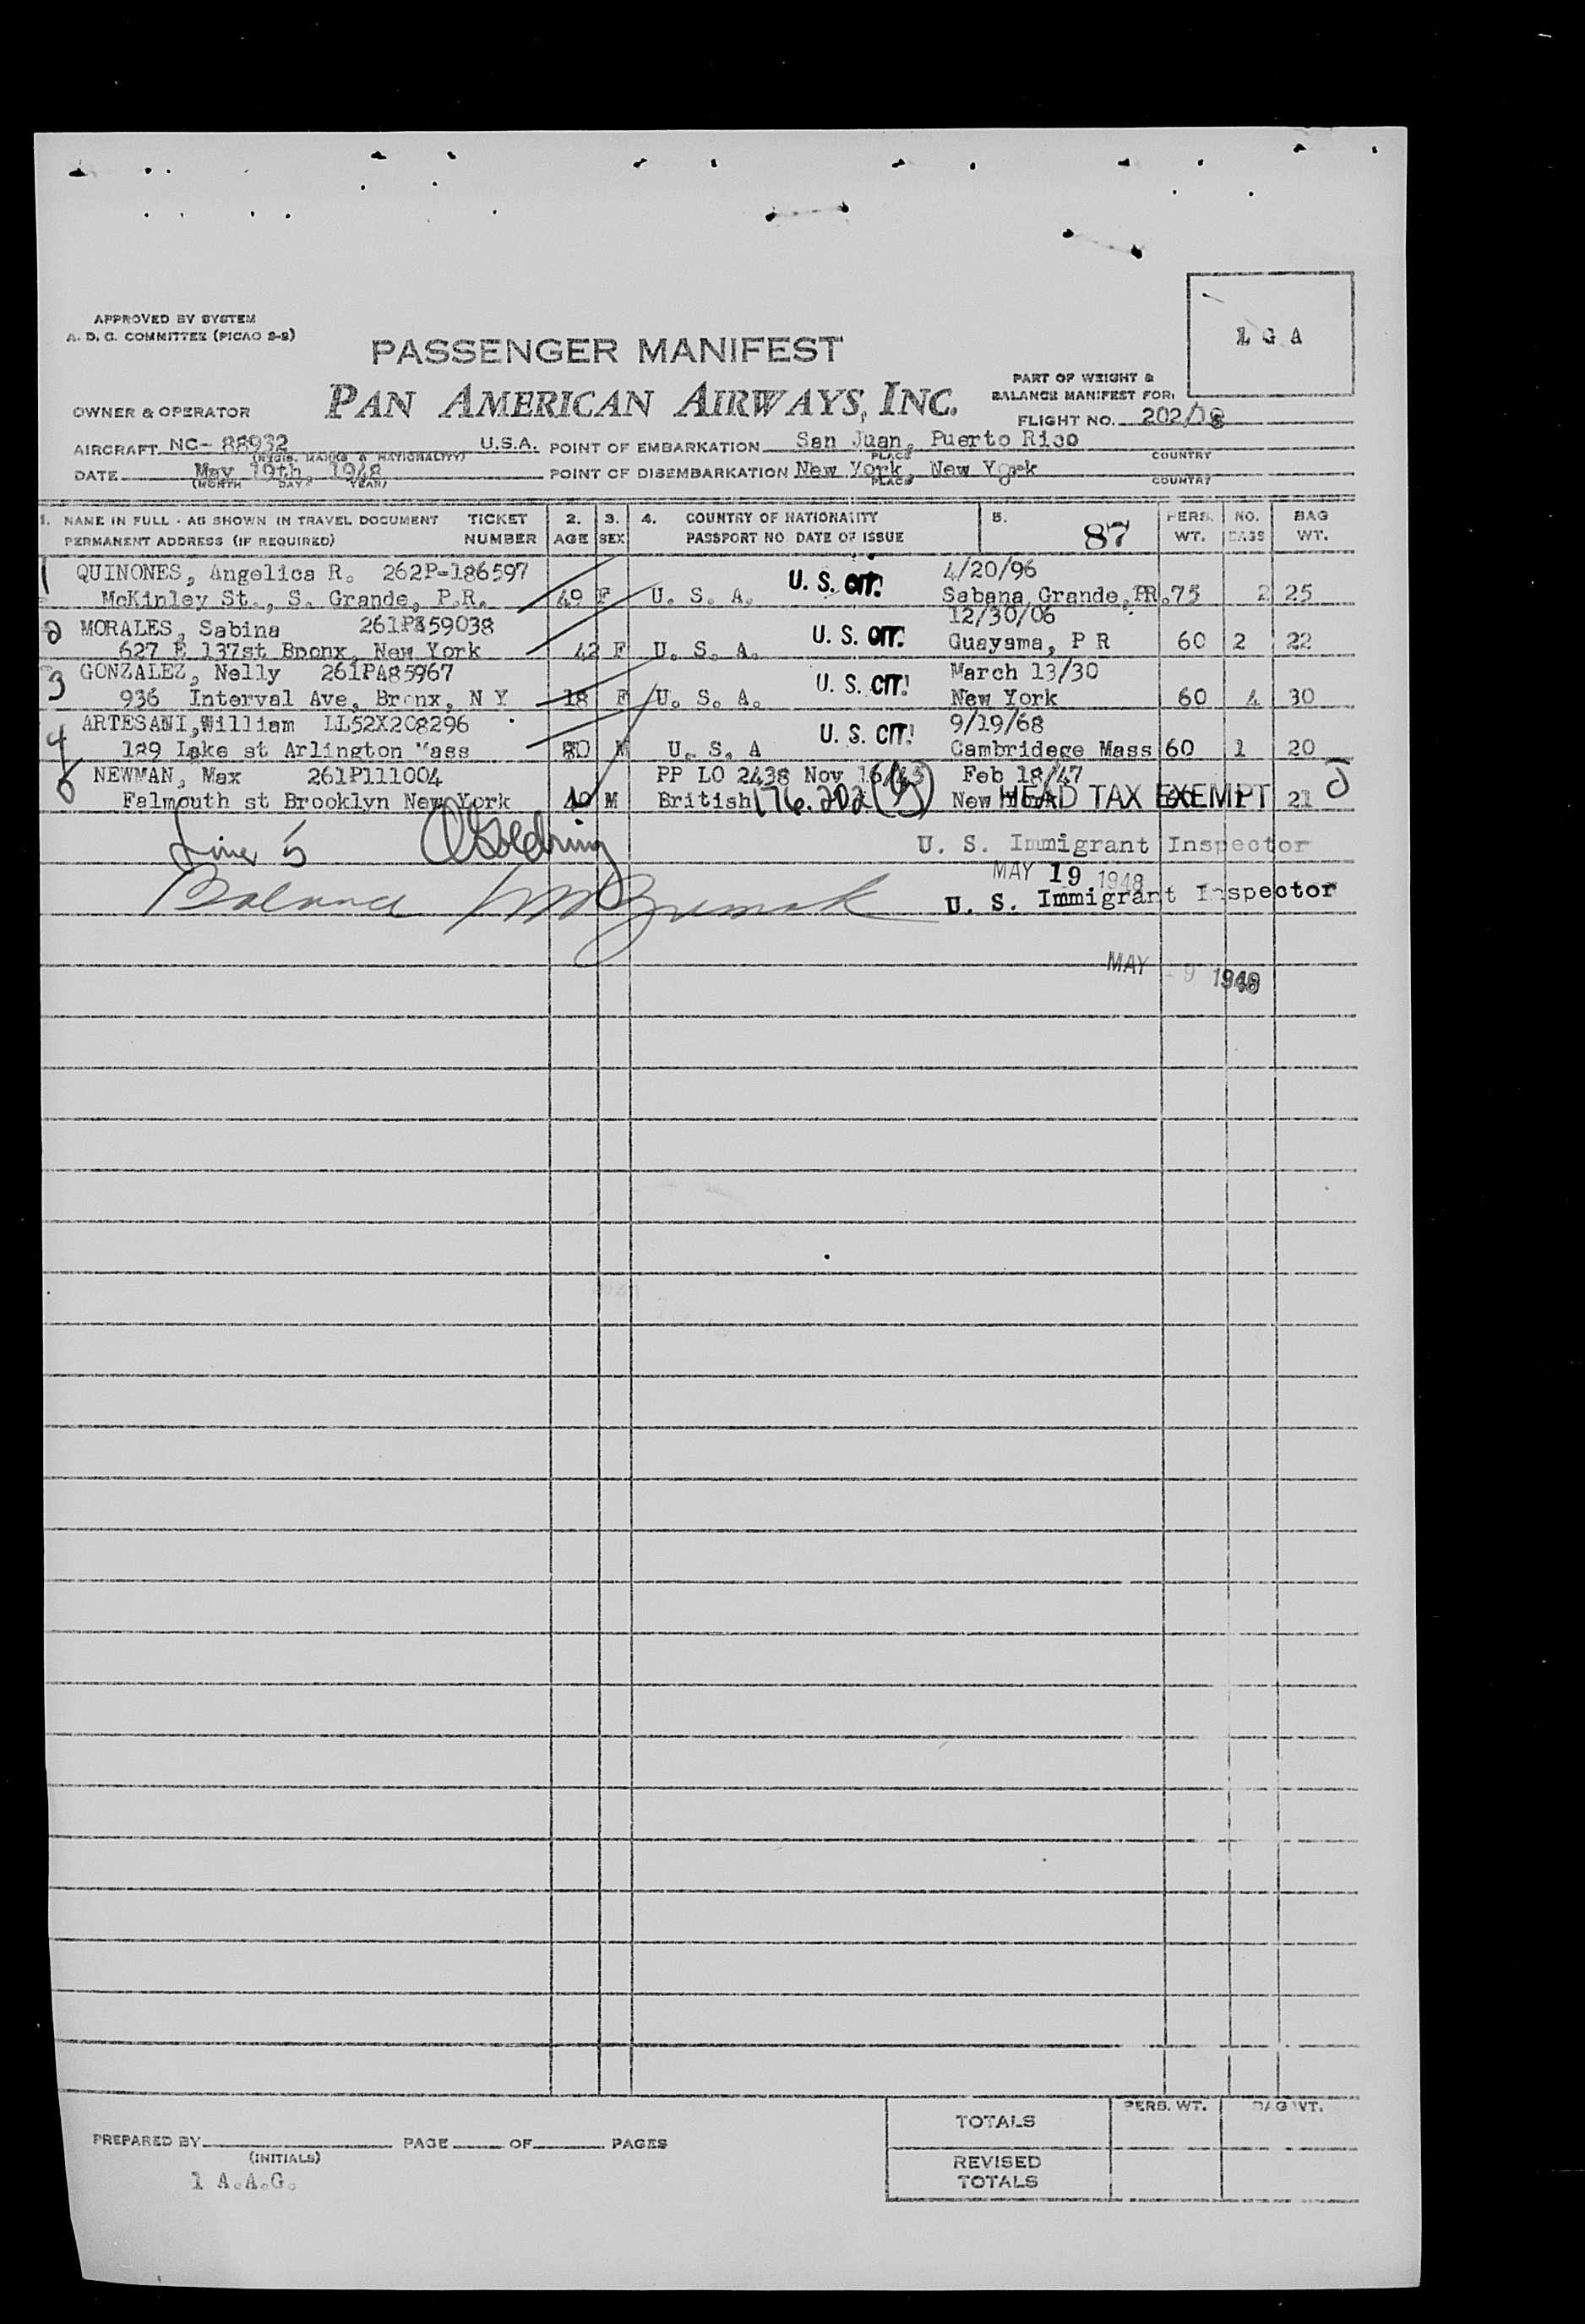 APPROVED BY SYSTEM
A. D. C. COMMITTEE (PICAO S-9)
L G A
PASSENGER MANIFEST
PAN AMERICAN AIRWAYS, INC.
PART OF WEIGHT &
BALANCE MANIFEST FOR:
OWNER & OPERATOR
FLIGHT NO. 202/18
AIRCRAFT NC- 88932 U.S.A. POINT OF EMBARKATION San Juan, Puerto Rico
(REGIS. MARKS & NATIONALITY) PLACE COUNTRY
DATE May 19th, 1948 POINT OF DISEMBARKATION New York, New York
(MONTH DAY YEAR) PLACE COUNTRY
1. NAME IN FULL - AS SHOWN IN TRAVEL DOCUMENT TICKET 2. 3. 4. COUNTRY OF NATIONALITY 5. 87 PERS. NO. BAG
PERMANENT ADDRESS (IF REQUIRED) NUMBER AGE SEX PASSPORT NO. DATE OF ISSUE WT. BAGS WT.
1 QUINONES, Angelica R. 262P-186597 U. S. CIT. 4/20/96
McKinley St., S. Grande, P.R. 49 F U. S. A. Sabana Grande, PR. 75 2 25
2 MORALES, Sabina 261PA59038 U. S. CIT. 12/30/06
627 E 137st Bronx, New York 42 F U. S. A. Guayama, P R 60 2 22
3 GONZALEZ, Nelly 261PA85967 U. S. CIT. March 13/30
936 Interval Ave, Bronx, N Y 18 F U. S. A. New York 60 4 30
4 ARTESANI, William LL52X208296 U. S. CIT. 9/19/68
189 Lake st Arlington Mass 80 M U. S. A Cambridege Mass 60 1 20
5 NEWMAN, Max 261P111004 PP LO 2438 Nov 16/43 Feb 18/47
Falmouth st Brooklyn New York 49 M British 176.202 New York HEAD TAX EXEMPT 21
Line 5 Goldring U. S. Immigrant Inspector
MAY 19 1948
Balance U. S. Immigrant Inspector
MAY 19 1948
TOTALS PERS. WT. BAG WT.
PREPARED BY PAGE OF PAGES
(INITIALS)
REVISED
TOTALS
1 A.A.G.